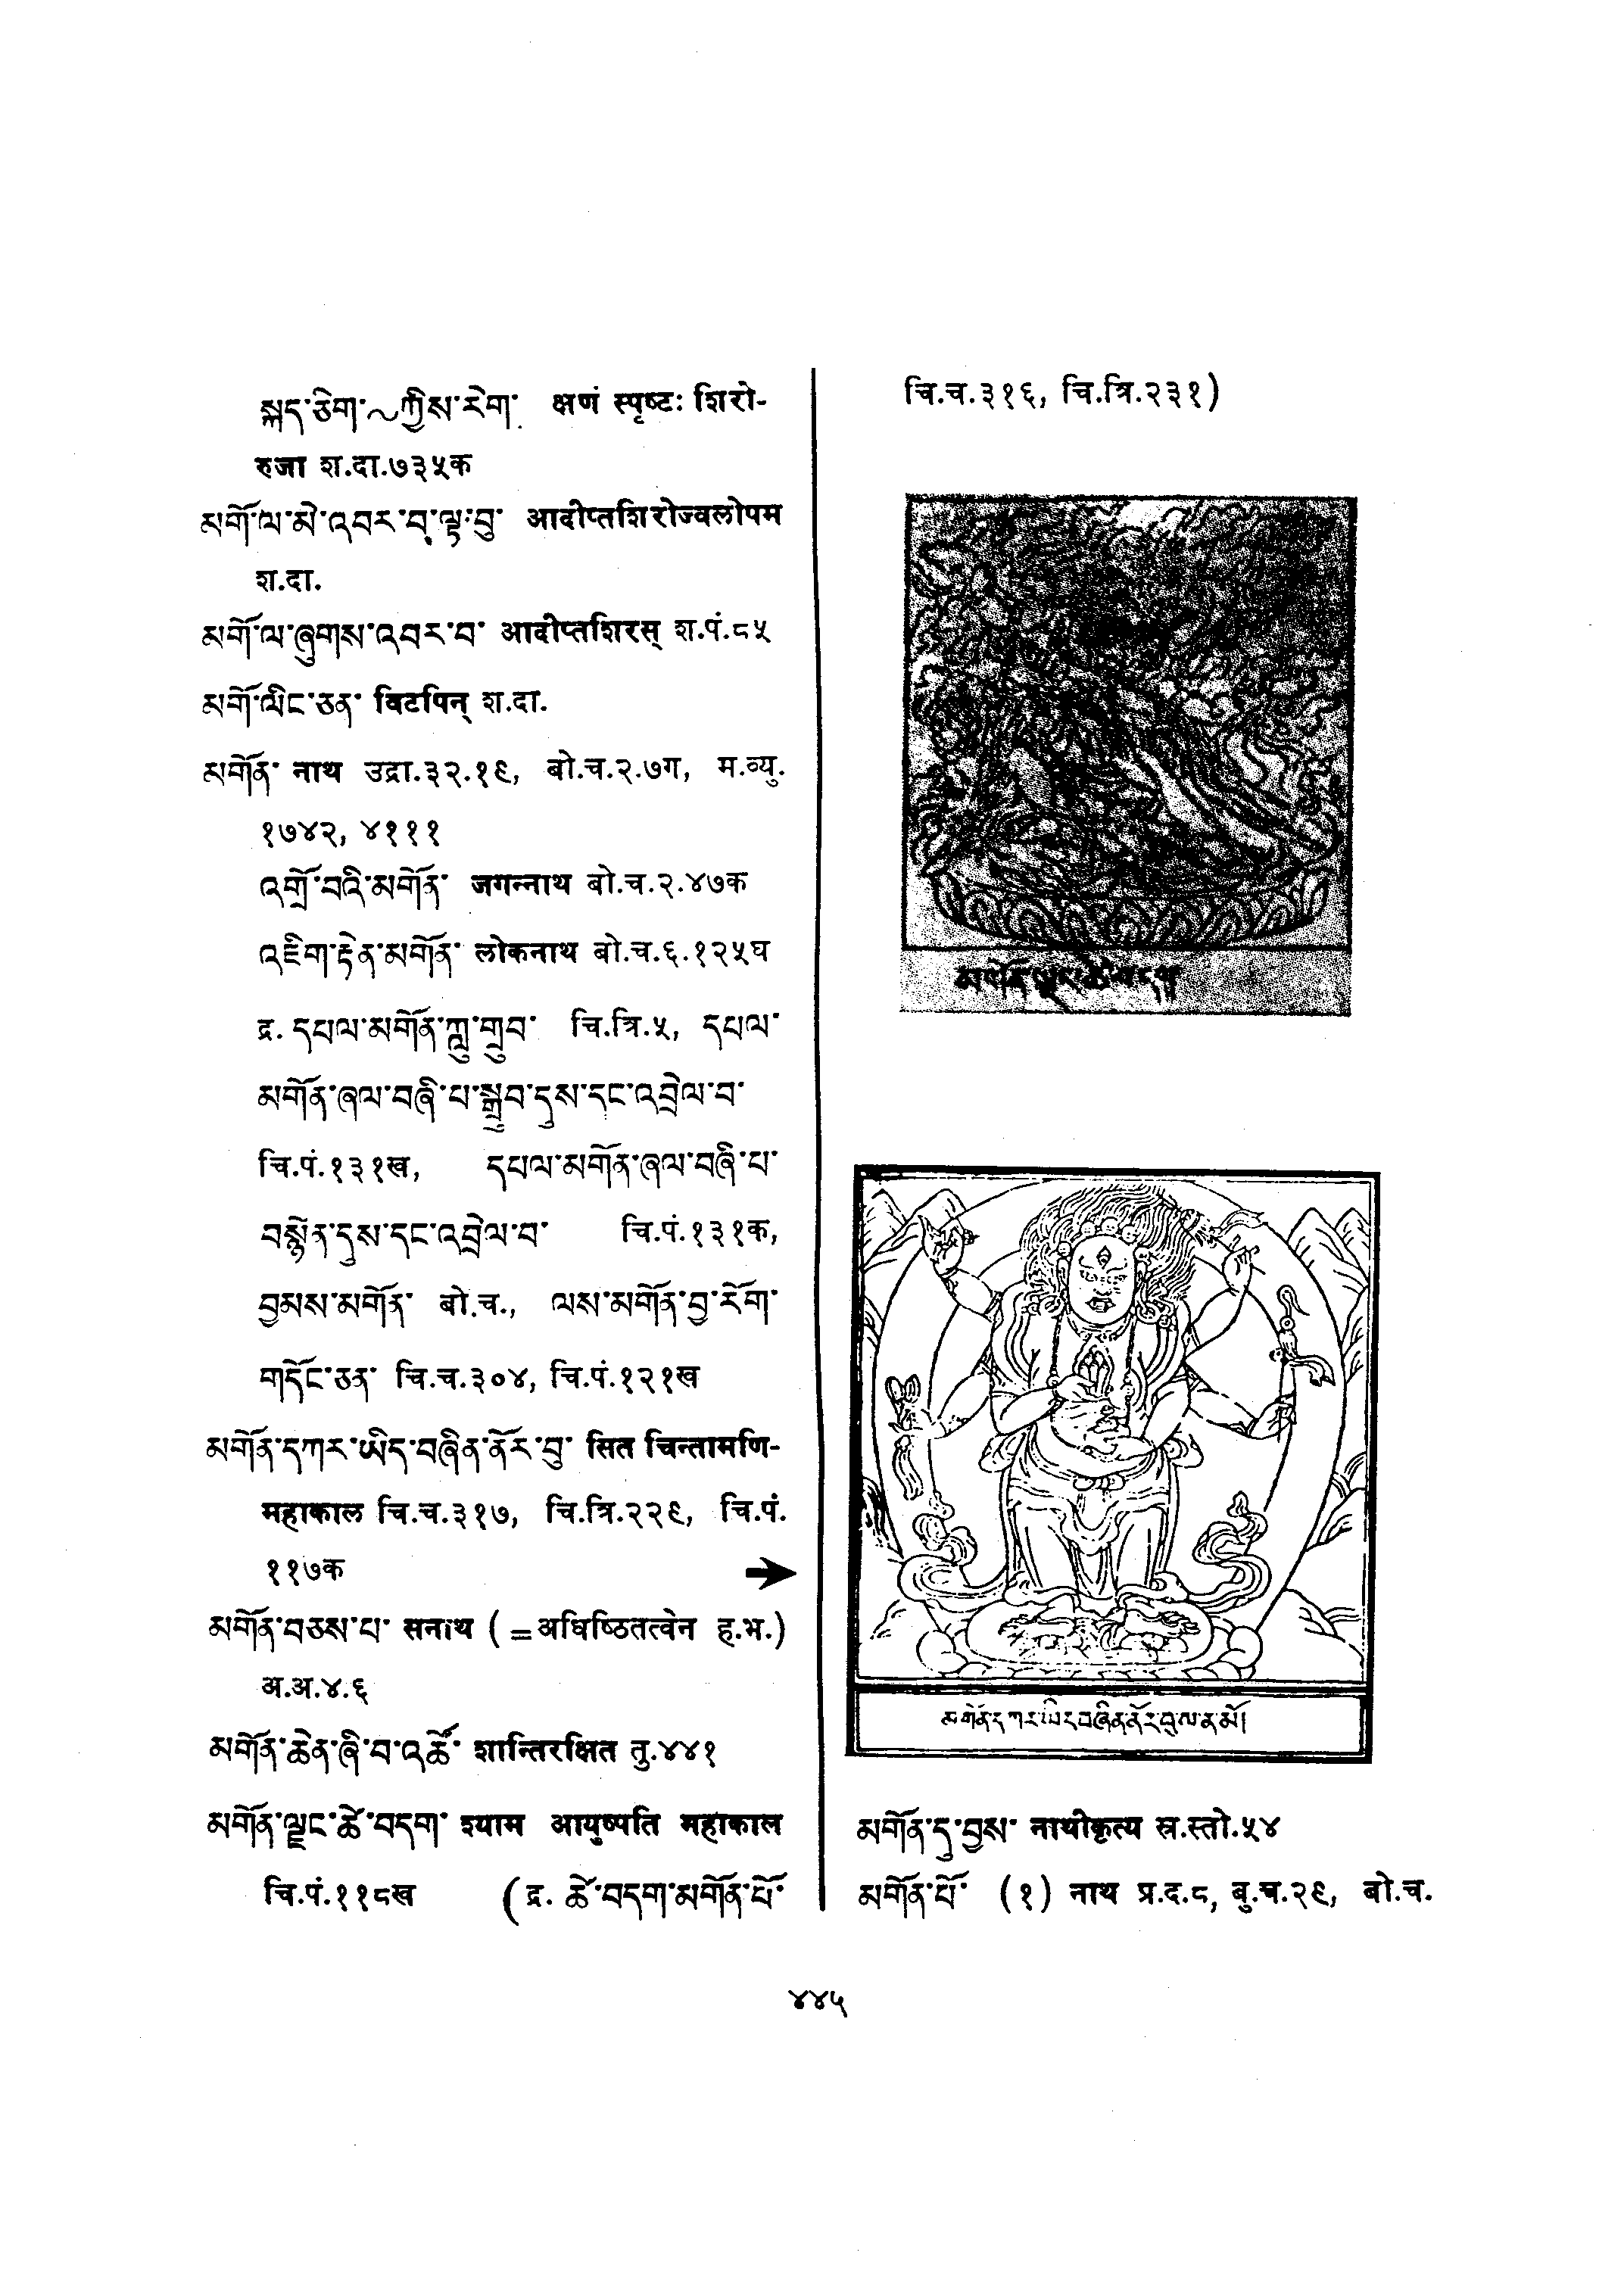 སྐད་ཅིག་~ཀྱིས་རེག་ क्षणं स्पृष्टः शिरो-
रुजा श.दा.७३५क
མགོ་ལ་མེ་འབར་བ་ལྟ་བུ་ आदीप्तशिरोज्वलोपम
श.दा.
མགོ་ལ་ཞུགས་འབར་བ་ आदीप्तशिरस् श.पं.८५
མགོ་ལིང་ཅན་ विटपिन् श.दा.
མགོན་ नाथ उद्रा.३२.१९, बो.च.२.७ग, म.व्यु.
१७४२, ४१११
འགྲོ་བའི་མགོན་ जगन्नाथ बो.च.२.४७क
འཇིག་རྟེན་མགོན་ लोकनाथ बो.च.६.१२५घ
द्र. དཔལ་མགོན་ཀླུ་གྲུབ་ चि.त्रि.५, དཔལ་
མགོན་ཞལ་བཞི་པ་སྒྲུབ་དུས་དང་འབྲེལ་བ་
चि.पं.१३१ख, དཔལ་མགོན་ཞལ་བཞི་པ་
བསྙེན་དུས་དང་འབྲེལ་བ་ चि.पं.१३१क,
བྱམས་མགོན་ बो.च., ལས་མགོན་བྱ་རོག་
གདོང་ཅན་ चि.च.३०४, चि.पं.१२१ख
མགོན་དཀར་ཡིད་བཞིན་ནོར་བུ་ सित चिन्तामणि-
महाकाल चि.च.३१७, चि.त्रि.२२९, चि.पं.
११७क ➔
མགོན་བཅས་པ་ सनाथ (=अधिष्ठितत्वेन ह.भ.)
अ.अ.४.६
མགོན་ཆེན་ཞི་བ་འཚོ་ शान्तिरक्षित तु.४४१
མགོན་ལྗང་ཚེ་བདག་ श्याम आयुष्पति महाकाल
चि.पं.११८ख (द्र. ཚེ་བདག་མགོན་པོ་
चि.च.३१६, चि.त्रि.२३१)
མགོན་ལྗང་ཚེ་བདག
མགོན་དཀར་ཡིད་བཞིན་ནོར་བུ་ལ་ན་མོ།
མགོན་དུ་བྱས་ नाथीकृत्य स्र.स्तो.५४
མགོན་པོ་ (१) नाथ प्र.द.८, बु.च.२९, बो.च.
४४५